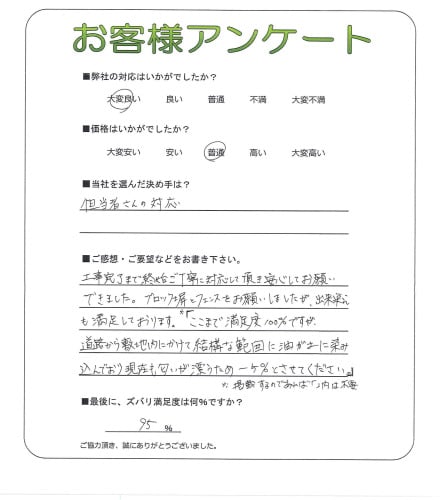 お客様アンケート
■弊社の対応はいかがでしたか？
大変良い 良い 普通 不満 大変不満
■価格はいかがでしたか？
大変安い 安い 普通 高い 大変高い
■当社を選んだ決め手は？
担当者さんの対応
■ご感想・ご要望などをお書き下さい。
工事完了まで終始ご丁寧に対応して頂き安心してお願い
できました。ブロック塀とフェンスをお願いしましたが、出来栄え
も満足しております。※「ここまで満足度100%ですが、
道路から敷地内にかけて結構な範囲に油がおに染み
込んでおり現在も匂いが漂うため－5%とさせてください。」
※掲載するのであれば「」内は不要
■最後に、ズバリ満足度は何%ですか？
95 %
ご協力頂き、誠にありがとうございました。